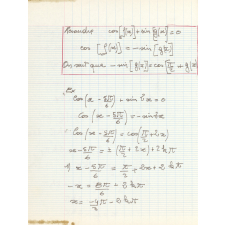 Résoudre cos[f(x)] + sin[g(x)] = 0
cos [f(x)] = - sin [g(x)]
On sait que - sin [g(x)] = cos[π/2 + g(x)]
Ex
cos (x - 5π/6) + sin 2x = 0
cos (x - 5π/6) = - sin 2x
cos (x - 5π/6) = cos(π/2 + 2x)
x - 5π/6 = ± (π/2 + 2x) + 2kπ
x - 5π/6 = π/2 + 2x + 2kπ
- x = + 2kπ
x = - 2kπ